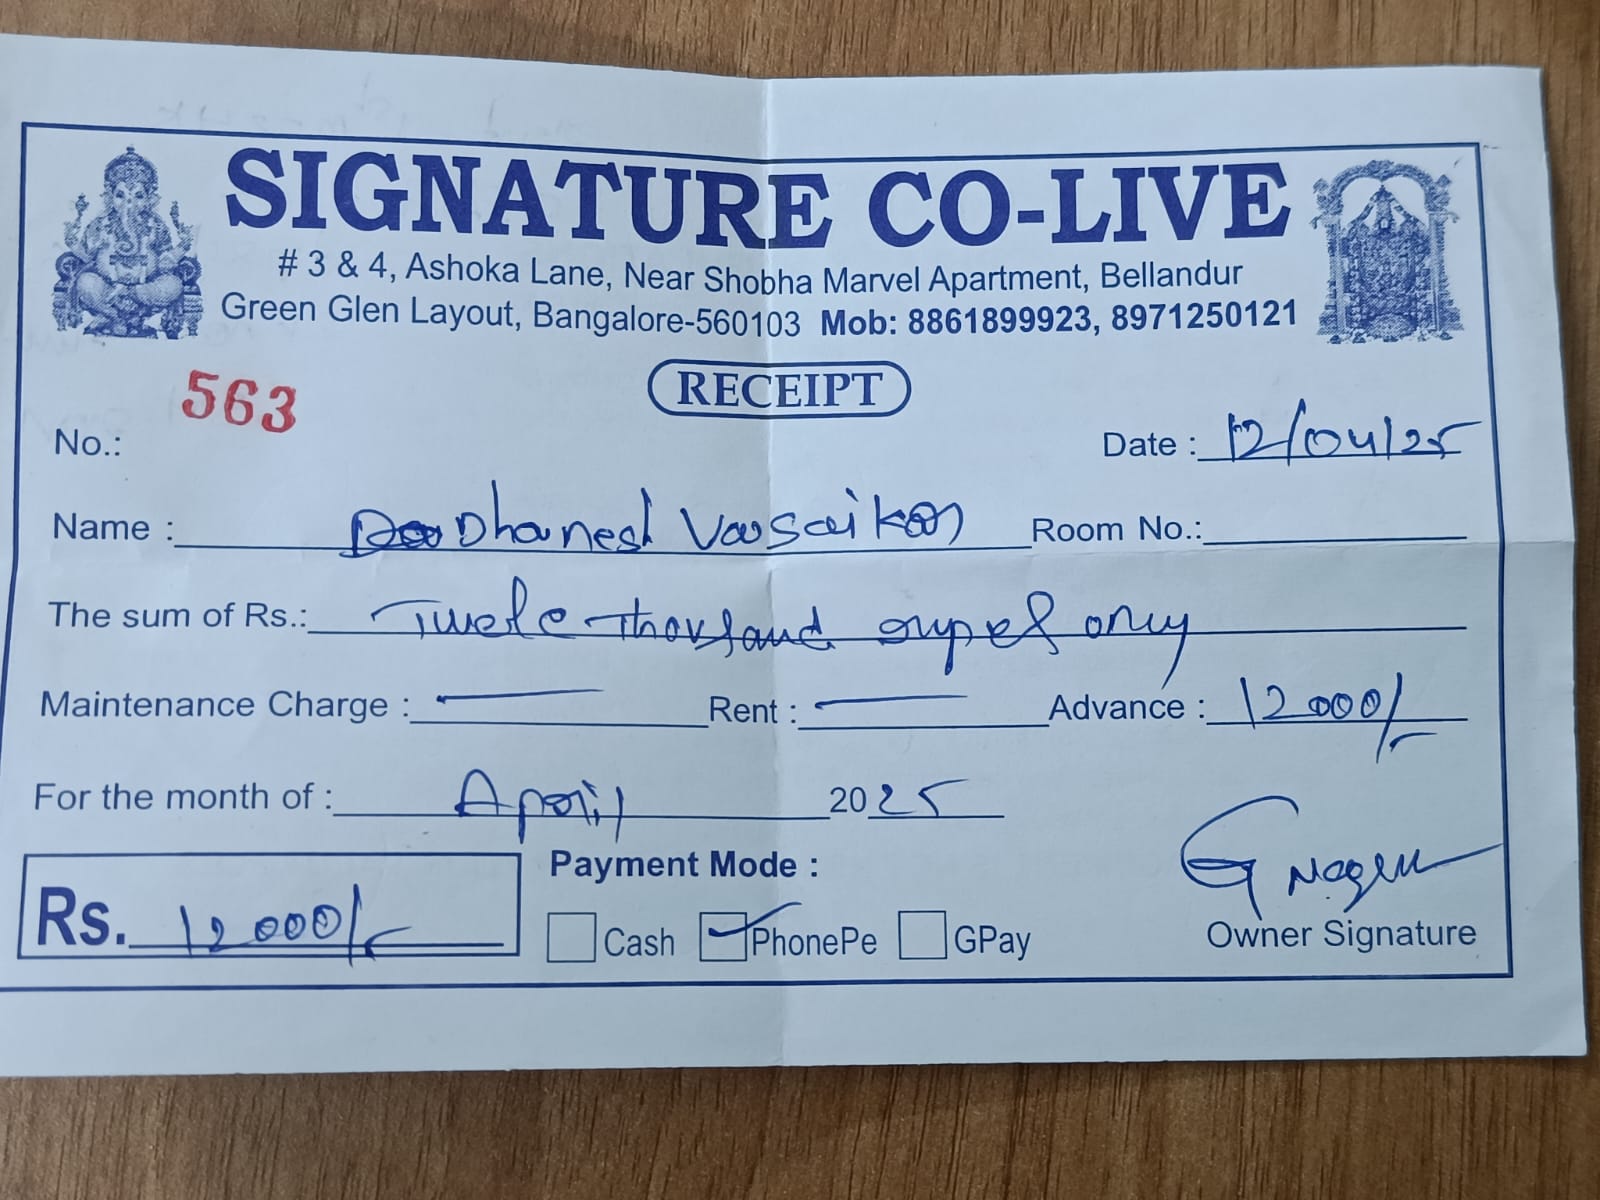 SIGNATURE CO-LIVE
# 3 & 4, Ashoka Lane, Near Shobha Marvel Apartment, Bellandur
Green Glen Layout, Bangalore-560103 Mob: 8861899923, 8971250121
RECEIPT
563
No.:
Date : 12/04/25
Name : Dhanesh Vasaikar Room No.:
The sum of Rs.: Twele Thousand rupes only
Maintenance Charge : — Rent : — Advance : 12000/-
For the month of : April 2025
Payment Mode :
Rs. 12000/-
Cash ✓ PhonePe GPay
Owner Signature